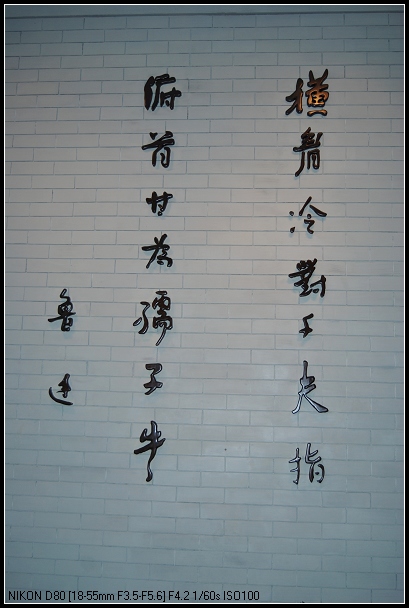 橫眉冷對千夫指
俯首甘為孺子牛
魯迅
NIKON D80 [18-55mm F3.5-F5.6] F4.2 1/60s ISO100